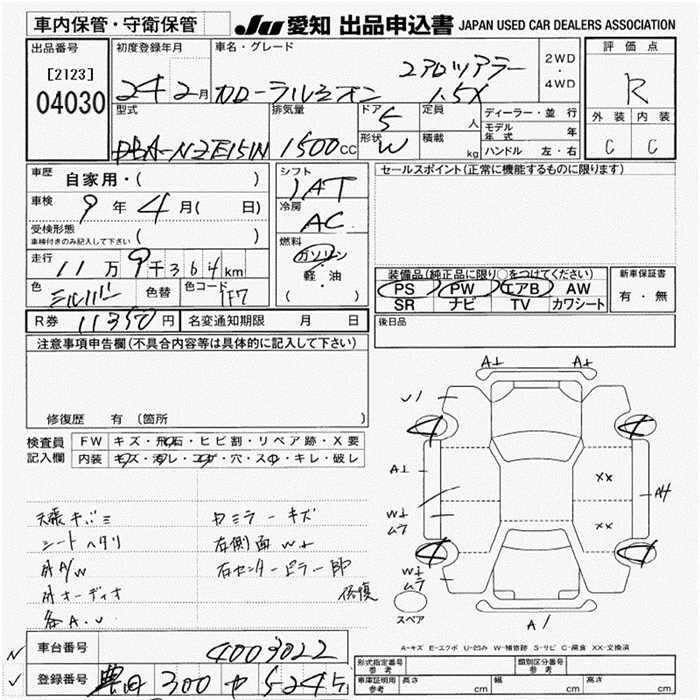 車内保管・守衛保管
JU 愛知 出品申込書 JAPAN USED CAR DEALERS ASSOCIATION
出品番号 [2123] 04030
初度登録年月 24 2月
車名・グレード カローラルミオン 1.5X
2WD ・ 4WD
評価点 R
外装 内装
C C
型式 DBA-NZE151N
排気量 1500cc
ドア 5
形状 W
定員 人
積載 kg
ディーラー・並行
モデル年式 年
ハンドル 左・右
車歴 自家用・( )
車検 9年 4月( 日)
受検形態 車検付きのみ記入して下さい ( )
走行 11万 9千 364km
色 シルバー 色替 色コード 1F7
R券 11350円 名変通知期限 月 日
シフト IAT
冷房 AC
燃料 ガソリン ・ 軽・油 ( ・ )
セールスポイント(正常に機能するものに限ります)
装備品(純正品に限り○をつけてください)
PS PW エアB AW
SR ナビ TV カワシート
新車保証書 有・無
後日品
注意事項申告欄(不具合内容等は具体的に記入して下さい)
修復歴 有 (箇所 )
検査員記入欄
FW キズ・飛石・ヒビ割・リペア跡・X要
内装 キズ・汚レ・コゲ・穴・スレ・キレ・破レ
天張キバミ
シートヘタリ
外A/W
外オーディオ
各A.U
右側面W±
右センターピラー
修復
A± A±
U1
A±
W±
ムラ
W±
ムラ
XX
XX
A4
4 4
4 4
スペア
A1
A-キズ E-エクボ U-凹み W-補修跡 S-サビ C-腐食 XX-交換済
車台番号 4003022
登録番号 豊田 300
形式指定番号 参考
類別区分番号 参考
車庫証明用 参考 長さ cm 幅 cm 高さ cm